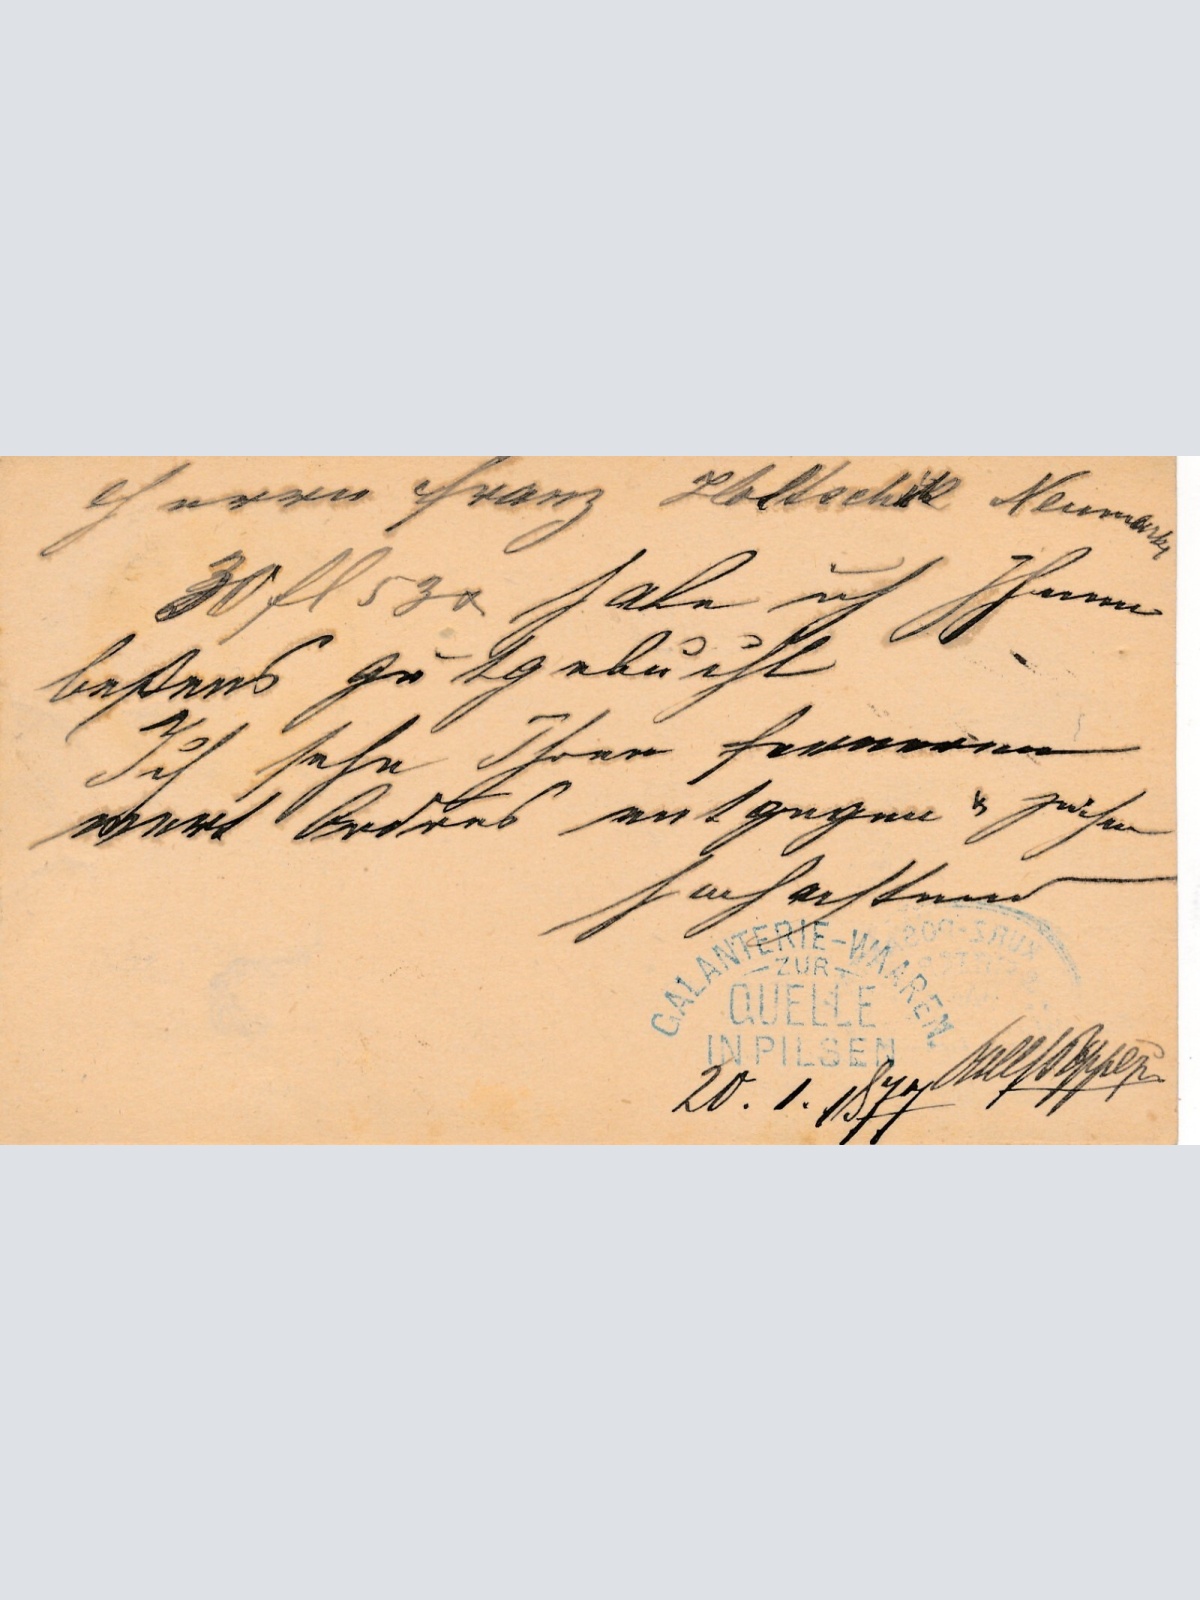 Herrn Franz Holtschik Neumark
30 fl 53 x habe ich Ihnen
bestens gutgebucht
Ich sehe Ihren ferneren
wert Ordres entgegen &
hochachtend
GALANTERIE-WAAREN
ZUR
QUELLE
IN PILSEN
20. 1. 1877